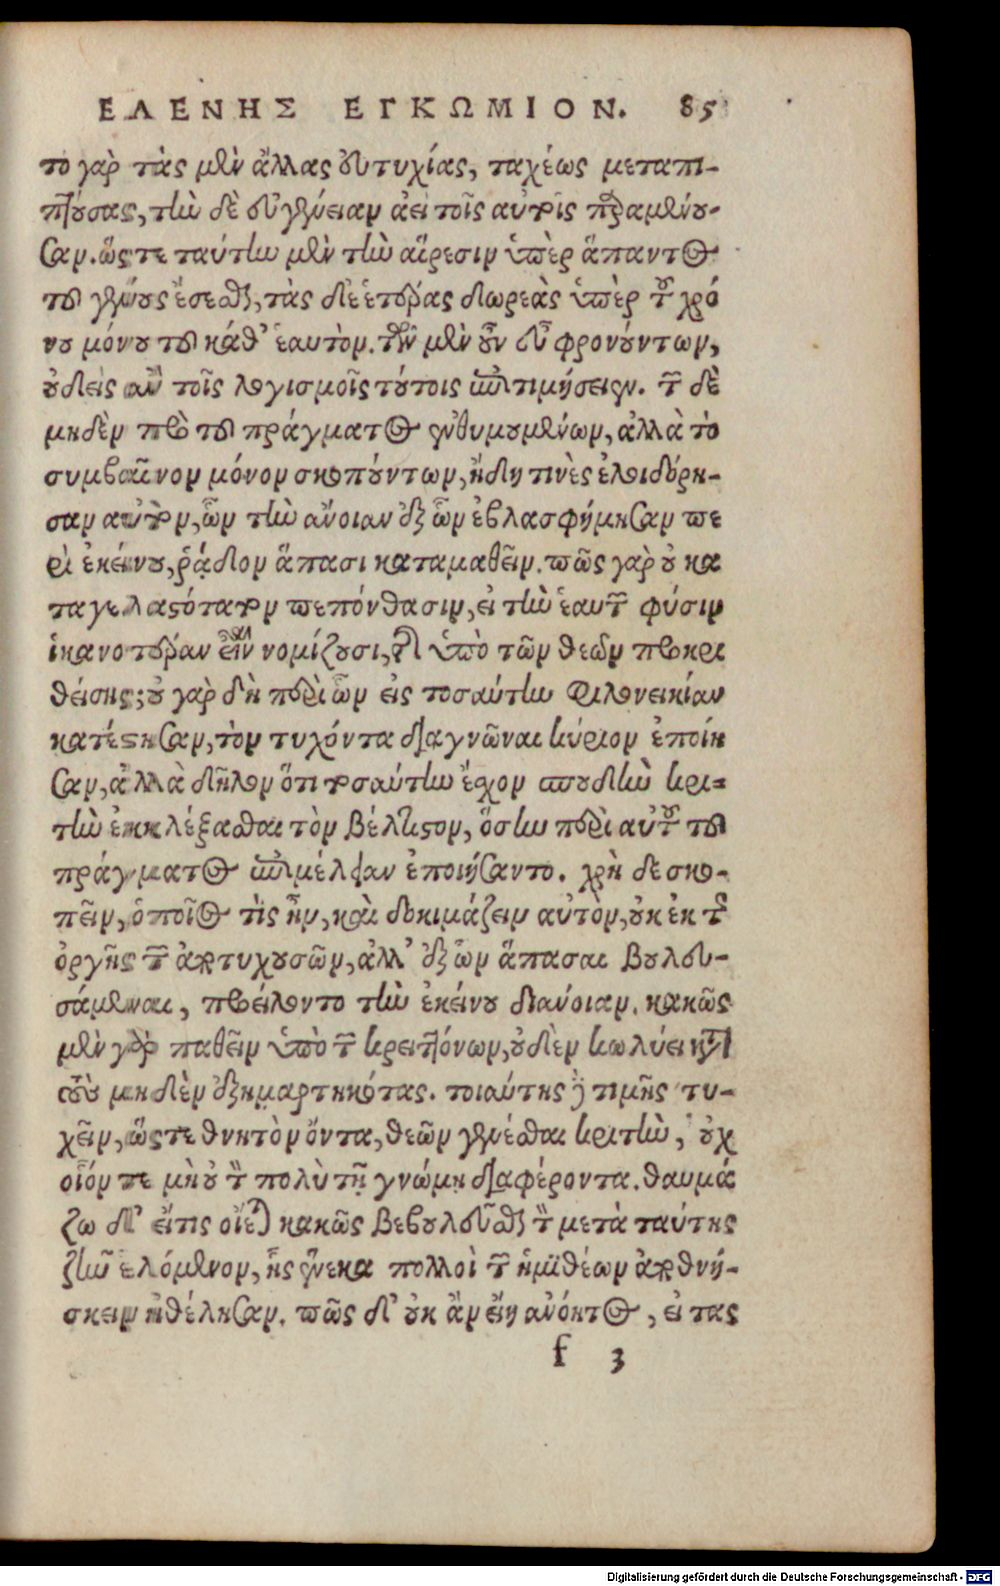 ΕΛΕΝΗΣ ΕΓΚΩΜΙΟΝ. 85
το γὰρ τὰς μὲν ἄλλας εὐτυχίας, ταχέως μεταπι-
πτούσας, τὴν δὲ συγγένειαν ἀεὶ τοῖς αὐτοῖς παραμένου-
σαν. ὥστε ταύτην μὲν τὴν αἵρεσιν ὑπὲρ ἅπαντος
τοῦ γένους ἔσεσθαι, τὰς δὲ ἑτέρας δωρεὰς ὑπὲρ τοῦ χρό
νου μόνου τοῦ καθ' ἑαυτὸν. τῶν μὲν οὖν εὖ φρονούντων,
οὐδεὶς ἂν τοῖς λογισμοῖς τούτοις ἐπιτιμήσειεν. τῶν δὲ
μηδὲν πρὸ τοῦ πράγματος ἐνθυμουμένων, ἀλλὰ τὸ
συμβαῖνον μόνον σκοπούντων, ἤδη τινὲς ἐλοιδόρη-
σαν αὐτὸν, ὧν τὴν ἄνοιαν ἐξ ὧν ἐβλασφήμησαν πε
ρὶ ἐκείνου, ῥᾴδιον ἅπασι καταμαθεῖν. πῶς γὰρ οὐ κα
ταγελαστότατον πεπόνθασιν, εἰ τὴν ἑαυτῶν φύσιν
ἱκανοτέραν εἶναι νομίζουσι, τῆς ὑπὸ τῶν θεῶν προκρι
θείσης; οὐ γὰρ δὴ περὶ ὧν εἰς τοσαύτην φιλονεικίαν
κατέστησαν, τὸν τυχόντα διαγνῶναι κύριον ἐποίη
σαν, ἀλλὰ δῆλον ὅτι τοσαύτην ἔχον σπουδὴν κρι-
τὴν ἐκκλέξασθαι τὸν βέλτιστον, ὅσην περὶ αὐτοῦ τοῦ
πράγματος ἐπιμέλειαν ἐποιήσαντο. χρὴ δὲ σκο-
πεῖν, ὁποῖος τὶς ἦν, καὶ δοκιμάζειν αὐτὸν, οὐκ ἐκ τῆς
ὀργῆς τῶν ἀποτυχουσῶν, ἀλλ' ἐξ ὧν ἅπασαι βουλευ-
σάμεναι, προείλοντο τὴν ἐκείνου διάνοιαν. κακῶς
μὲν γὰρ παθεῖν ὑπὸ τῶν κρειττόνων, οὐδὲν κωλύει καὶ
τοὺς μηδὲν ἐξημαρτηκότας. τοιαύτης δὲ τιμῆς τυ-
χεῖν, ὥστε θνητὸν ὄντα, θεῶν γενέσθαι κριτὴν, οὐχ
οἷόν τε μὴ οὐ τὸν πολὺ τῇ γνώμῃ διαφέροντα. θαυμά
ζω δ' εἴτις οἴεται κακῶς βεβουλεῦσθαι τὸν μετὰ ταύτης
ζῆν ἑλόμενον, ἧς ἕνεκα πολλοὶ τῶν ἡμιθέων ἀποθνή-
σκειν ἠθέλησαν. πῶς δ' οὐκ ἂν εἴη ἀνόητος, εἰ τας
f 3
Digitalisierung gefördert durch die Deutsche Forschungsgemeinschaft - DFG